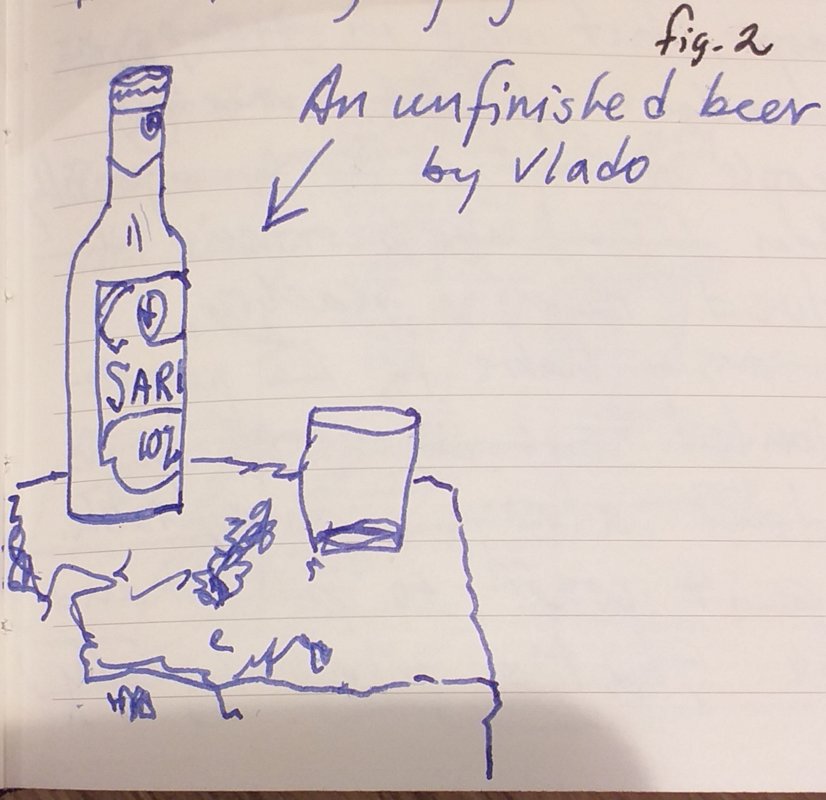 fig. 2
An unfinished beer
by Vlado
SARI